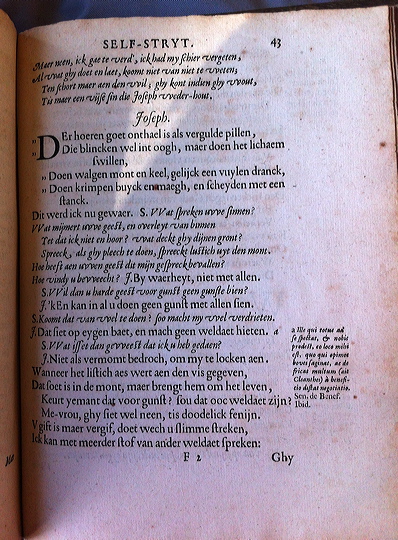 SELF-STRYT. 43
Maer neen, ick gae te verd', ick had my schier vergeten,
Al wat ghy doet en laet, koomt niet van niet te weten;
Ten schort maer aen den wil; ghy kont indien ghy wout,
Tis maer een vijse sin die Joseph weder-hout.
Joseph.
„ DEr hoeren goet onthael is als vergulde pillen,
„ Die blincken wel int oogh, maer doen het lichaem
swillen,
„ Doen walgen mont en keel, gelijck een vuylen dranck,
„ Doen krimpen buyck en maegh, en scheyden met een
stanck.
Dit werd ick nu gewaer. S. VVat spreken uwe sinnen?
VVat mijmert uwe geest, en overleyt van binnen
Tet dat ick niet en hoor? wat deckt ghy dijnen gront?
Spreeck, als ghy pleech te doen, spreeckt lustich uyt den mont.
Hoe heeft aen uwen geest dit mijn gespreck bevallen?
Hoe vindy u beweecht? J. By waerheyt, niet met allen.
S. VVil dan u harde geest voor gunst geen gunste bien?
J. 'kEn kan in al u doen geen gunst met allen sien.
S. Koomt dat van wel te doen? soo macht my wel verdrieten.
J. Dat siet op eygen baet, en mach geen weldaet hieten. a
S. VVat isset dan geweest dat ick u heb gedaen?
J. Niet als vermomt bedroch, om my te locken aen.
Wanneer het listich aes wert aen den vis gegeven,
Dat soet is in de mont, maer brengt hem om het leven,
Keurt yemant dat voor gunst? sou dat ooc weldaet zijn?
Me-vrou, ghy siet wel neen, tis doodelick fenijn.
V gift is maer vergif, doet wech u slimme streken,
Ick kan met meerder stof van ander weldaet spreken:
F 2 Ghy
a Ille qui totus ad
se spectat, & nobis
prodest, eo loco mihi
est. quo qui opimos
boves saginat, ac de
fricat multum (ait
Cleanthes) à benefi-
tio distat negotiatio.
Sen. de Benef.
Ibid.